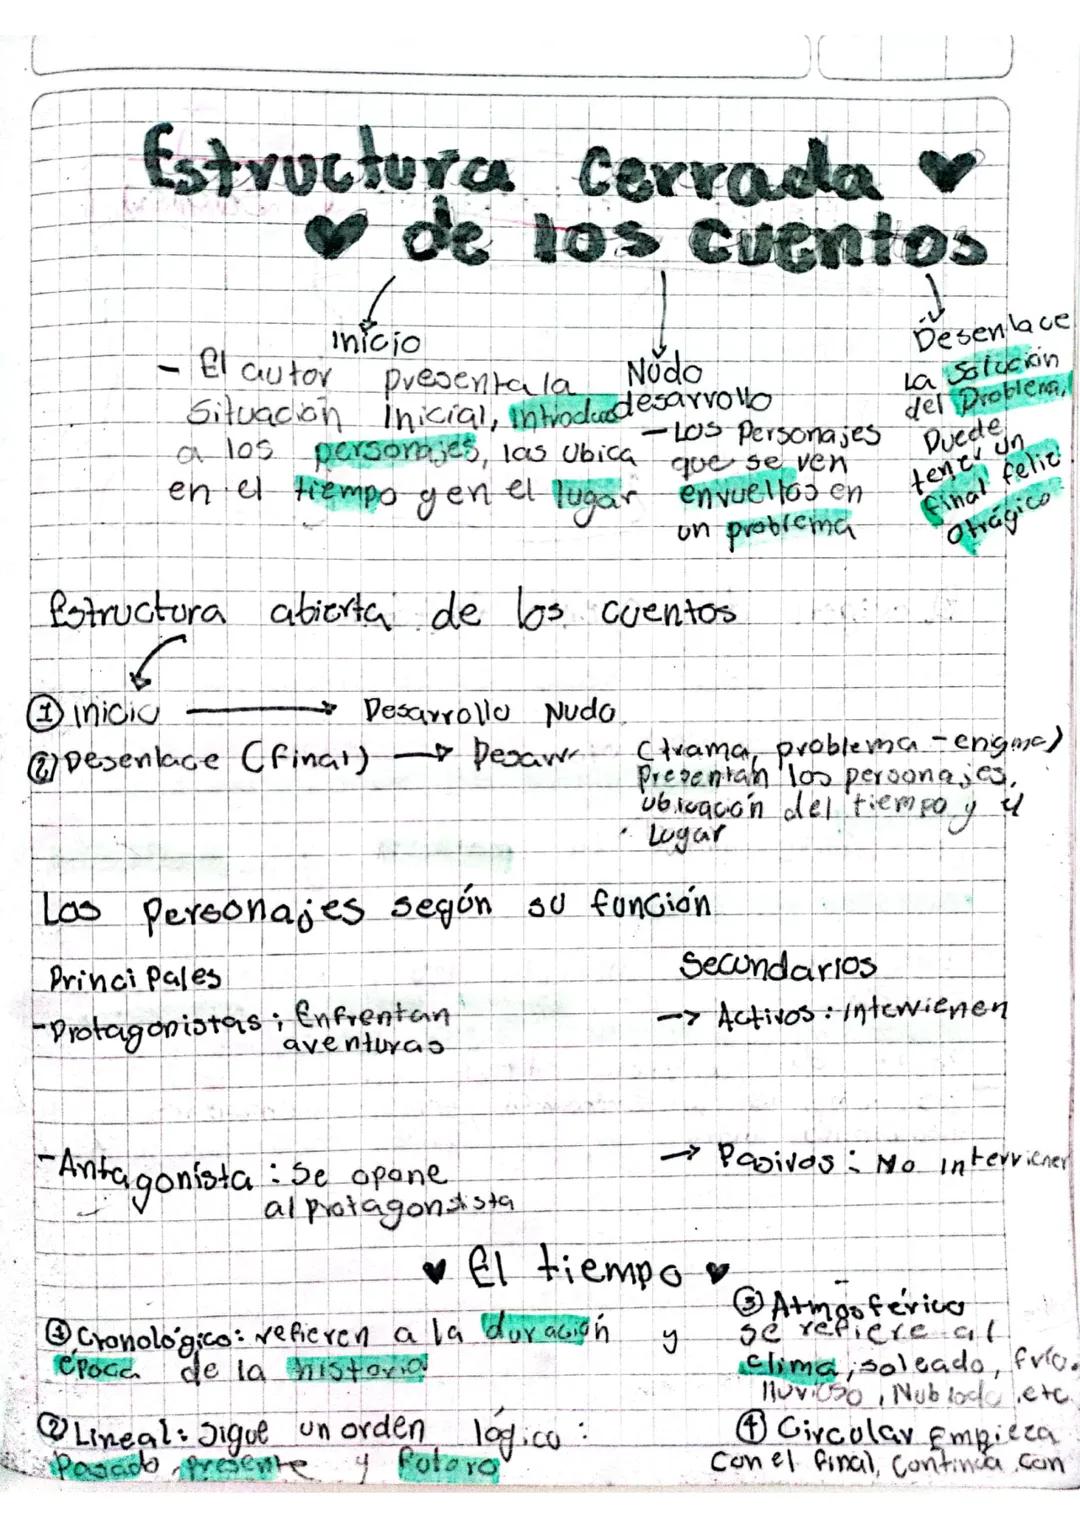 Estructura Cerrada
de los cuentos
Inicio
- El autor presenta la
Situación Inicial, introduce
a los personajes, las ubica
en el tiempo y en el lugar
Nudo
desarrollo
- Los Personajes
que se ven
envueltos en
un problema
Desenlace
La Solución
del Problema,
Puede
tener un
final feliz
o trágico
Estructura abierta de los cuentos
① Inicio → Desarrollo Nudo
② Desenlace (final) → Desarr
(trama, problema - enigma)
Presentan los personajes,
ubicación del tiempo y el
Lugar
Los personajes según su función
Principales
-Protagonistas: Enfrentan
aventuras
-Antagonista: Se opone
al protagonista
Secundarios
→ Activos: intervienen
→ Pasivos: No intervienen
El tiempo
① Cronológico: refieren a la duración y
época de la historia
② Lineal: Sigue un orden lógico:
Pasado, presente y futuro
③ Atmosférico
se refiere al
clima, soleado, frío,
lluvioso, Nublado, etc
④ Circular Empieza
Con el final, Continúa con